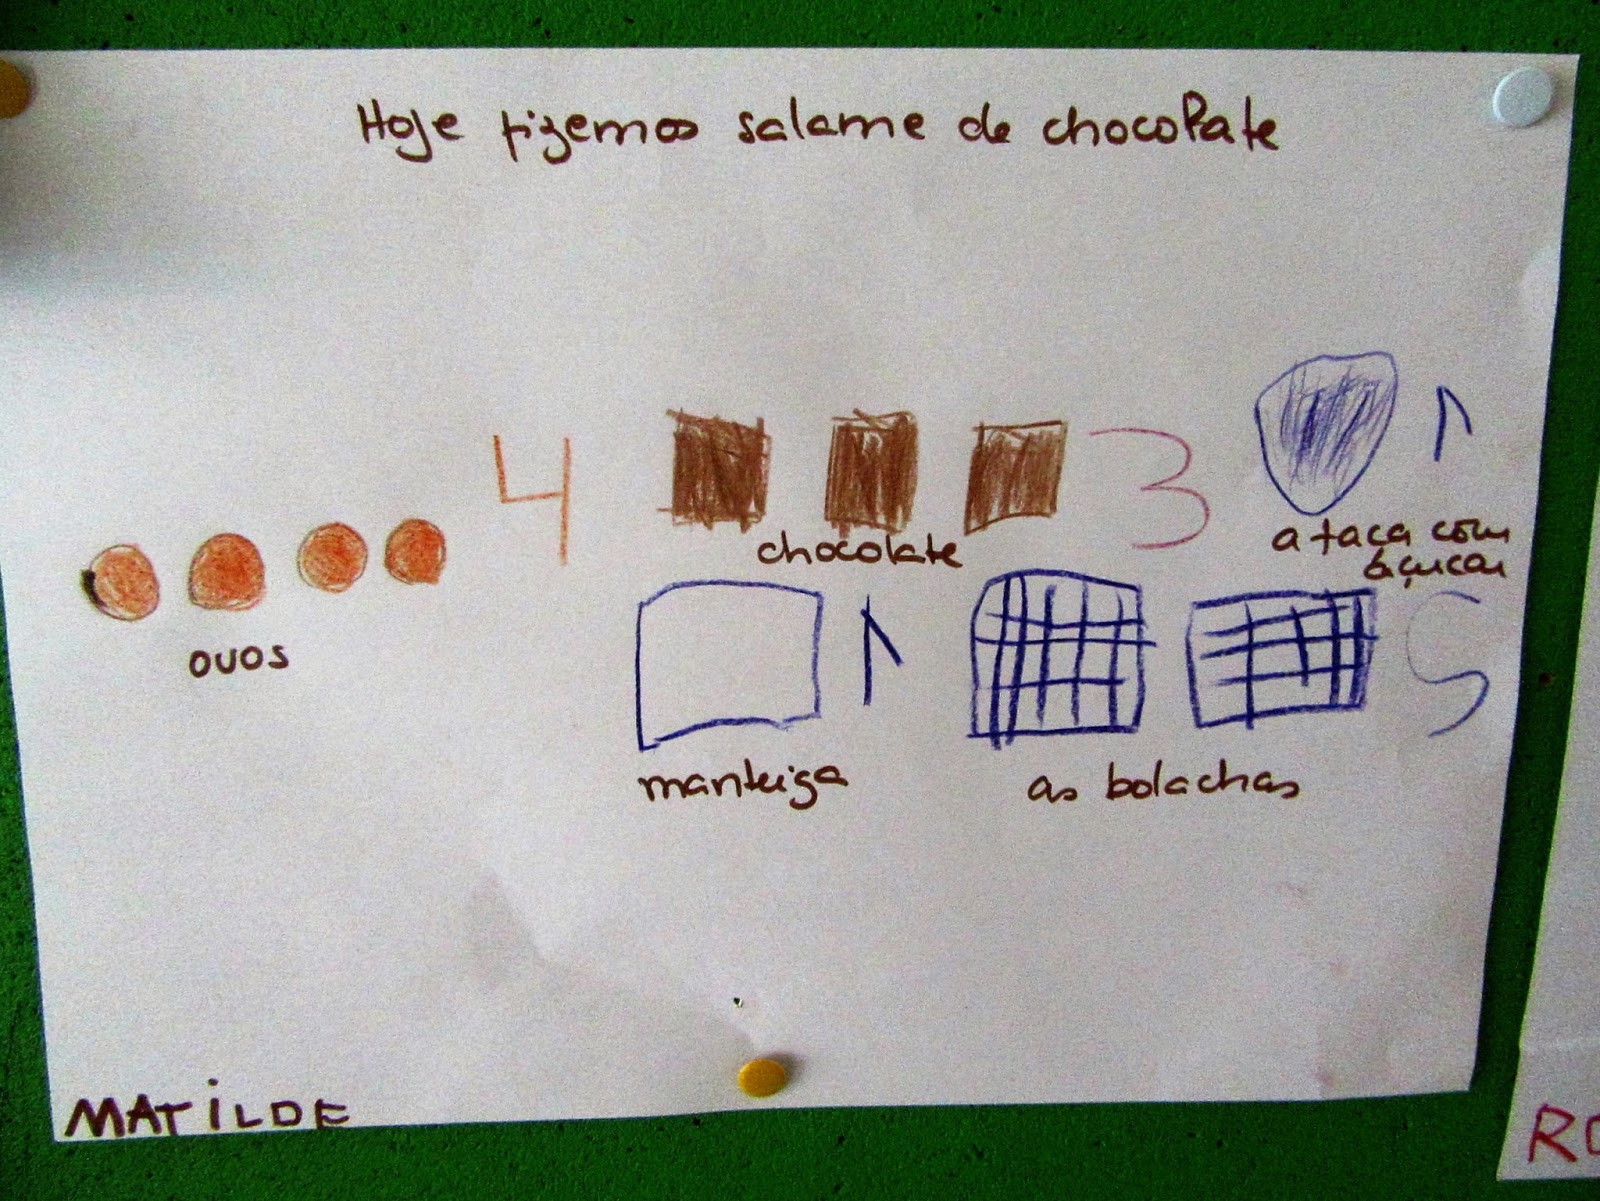 Hoje fizemos salame de chocolate
4
3
1
chocolate
a taça com
açucar
ovos
1
5
manteiga
as bolachas
MATILDE
RO